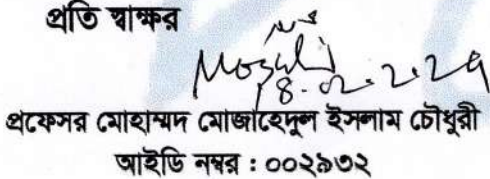 প্রতি স্বাক্ষর
18.02.2029
প্রফেসর মোহাম্মদ মোজাহেদুল ইসলাম চৌধুরী
আইডি নম্বর : ০০২৯৩২